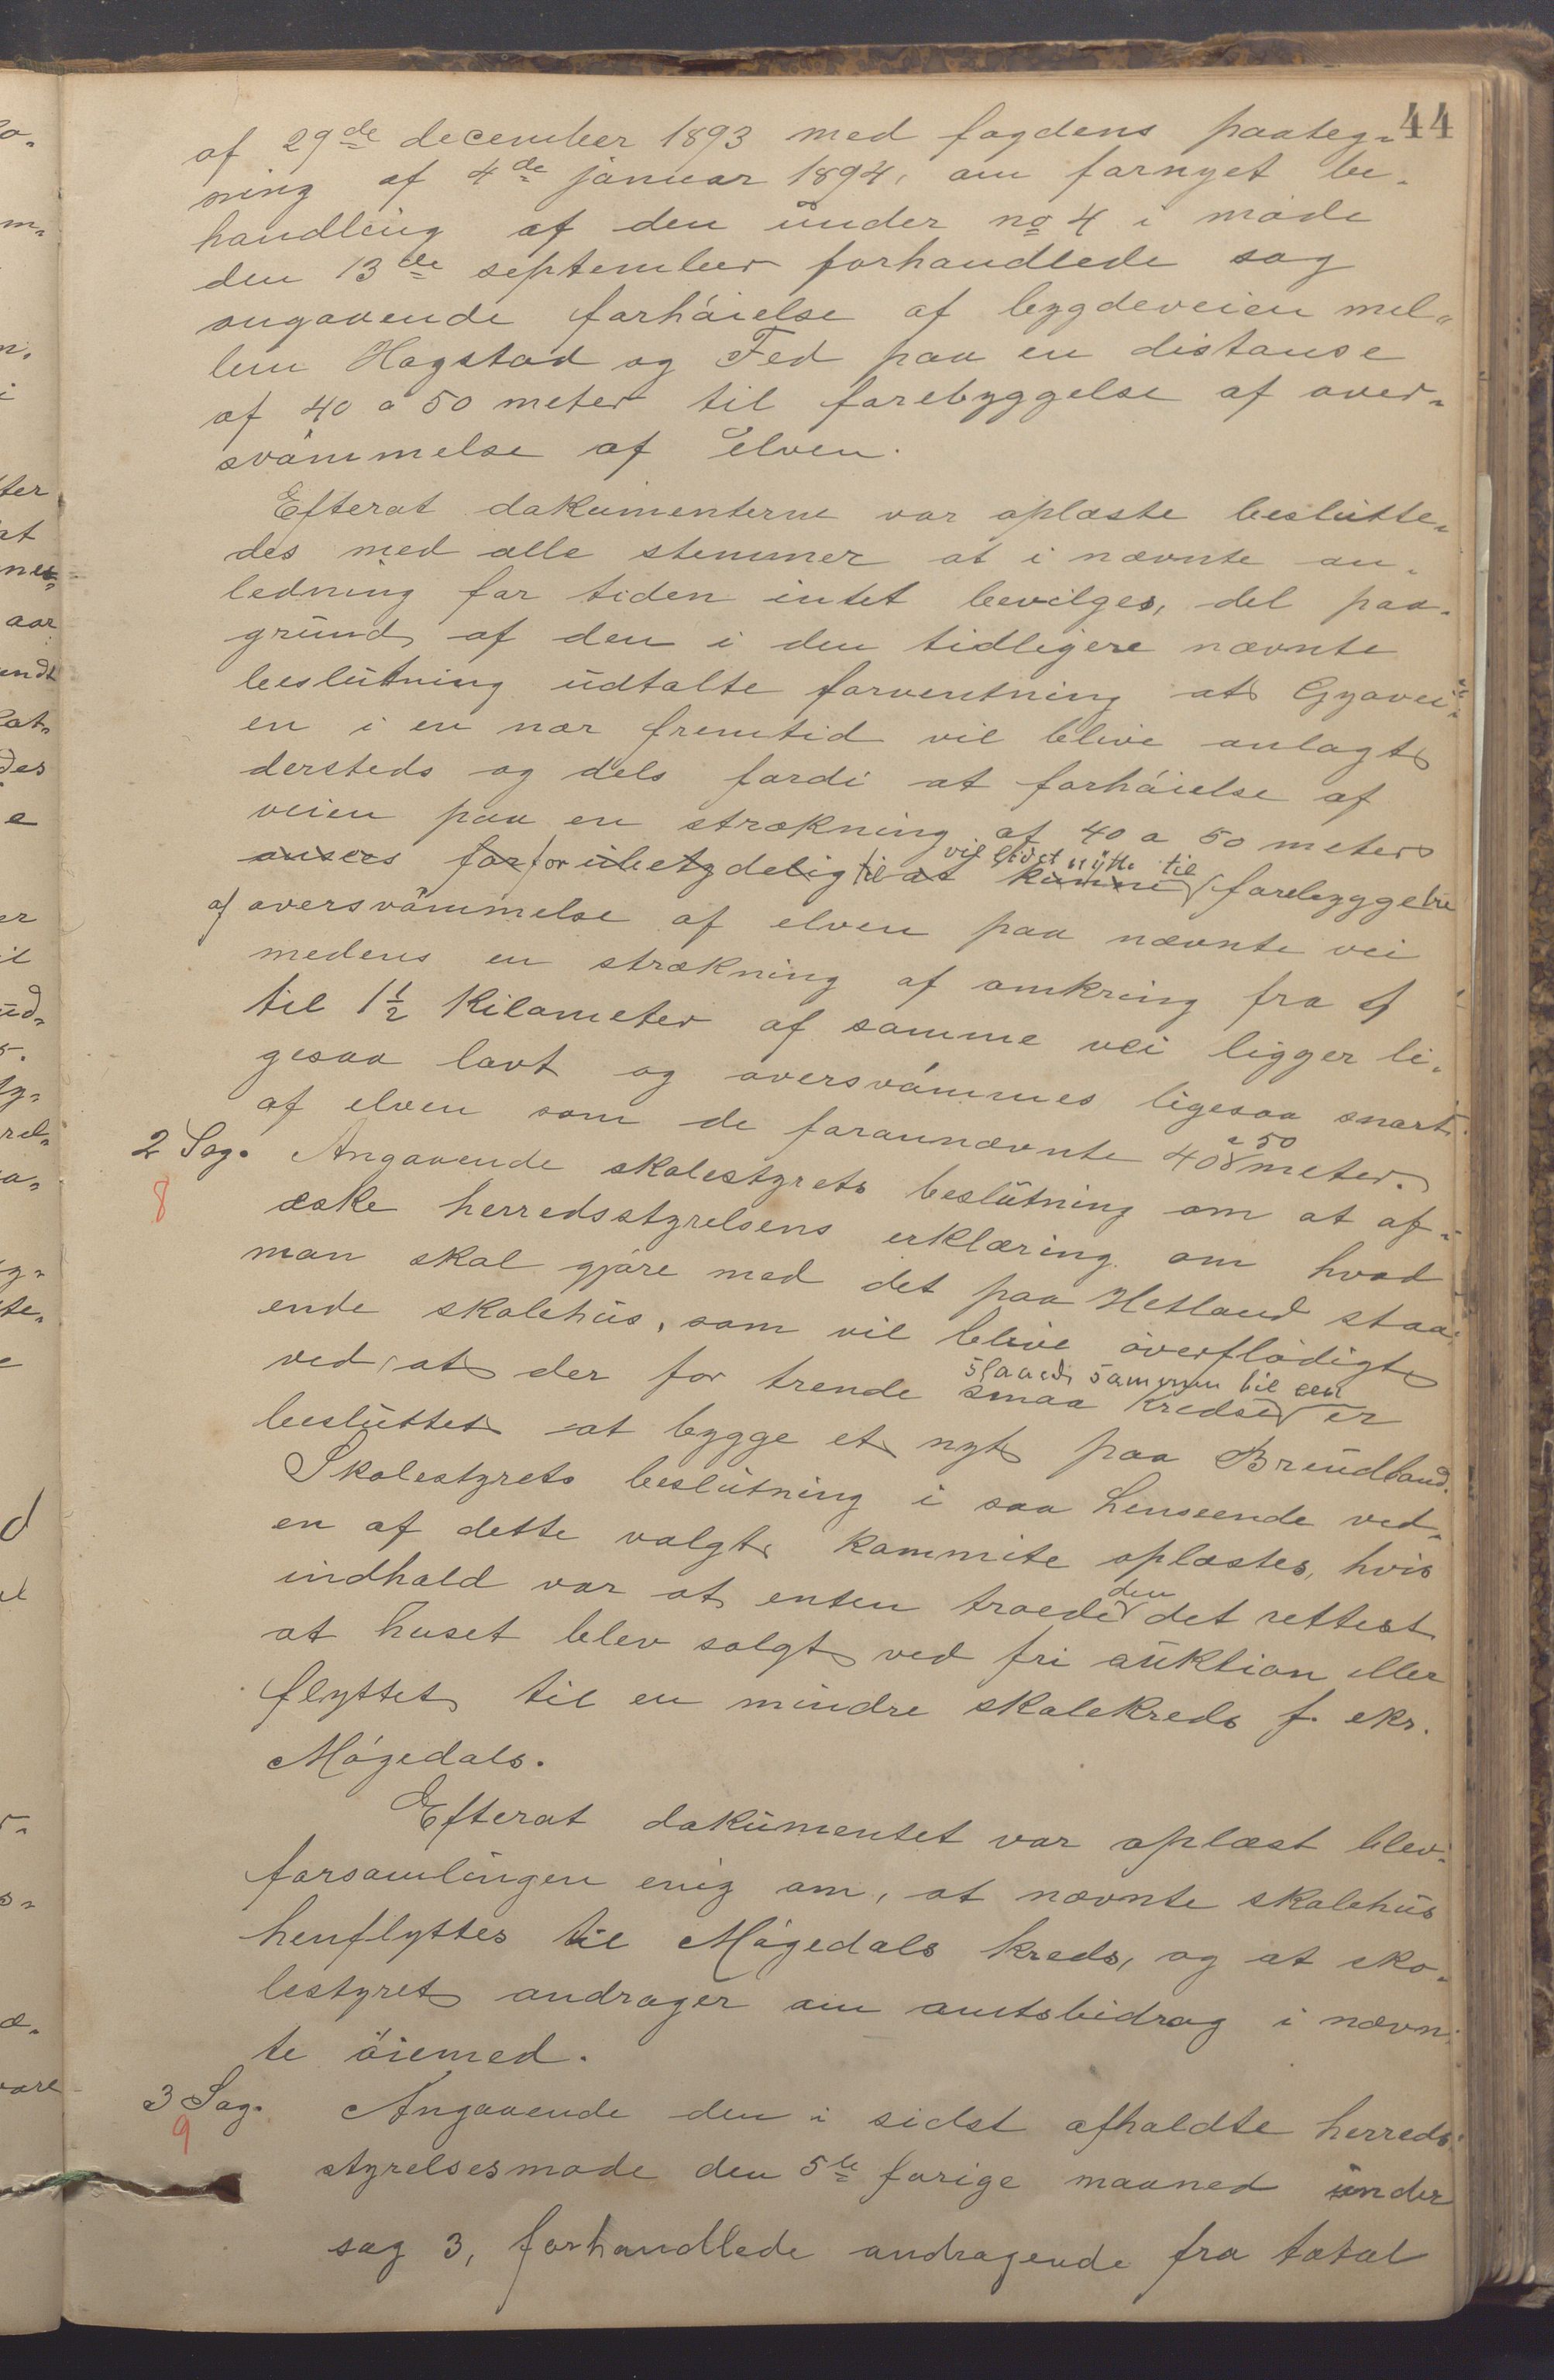 44
af 29de december 1893 med fogdens paateg-
ning af 4de januar 1894, om fornyet be-
handling af den under no 4 i møde
den 13de september forhandlede sag
angaaende forhøielse af bygdeveien mel-
lem Hogstad og Fed paa en distanse
af 40 a 50 meter til forebyggelse af over-
svømmelse af elven.
Efterat dokumenterne var oplæste beslutte-
des med alle stemmer at i nævnte an-
ledning for tiden intet bevilges, del paa
grund af den i den tidligere nævnte
beslutning udtalte forventning at Gyavei-
en i en nær fremtid vil blive anlagt
dersteds og dels fordi at forhøielse af
veien paa en strækning af 40 a 50 meter
vil lidet nytte til
ansees for for ubetydelig til at kunne forebyggelse
af oversvømmelse af elven paa nævnte vei
medens en strækning af omkring fra 1
til 1½ kilometer af samme vei ligger li-
gesaa lavt og oversvømmes ligesaa snart
af elven som de forannævnte 40 a 50 meter.
2 Sag. Angaaende skolestyrets beslutning om at af-
8
æske herredsstyrelsens erklæring om hvad
man skal gjøre med det paa Hetland staa-
ende skolehus, som vil blive overflødigt
ved at der for trende smaa kredse slaaed sammen til een er
besluttet at bygge et nyt paa Bruudland.
Skolestyrets beslutning i saa henseende ved-
en af dette valgt kommite oplæstes, hvis
indhold var at enten troede den det rettest
at huset blev solgt ved fri auktion eller
flyttet til en mindre skolekreds f. eks.
Møgedals.
Efterat dokumentet var oplæst blev
forsamlingen enig om, at nævnte skolehus
henflyttes til Møgedals kreds, og at sko-
lestyret andrager om amtsbidrag i nævn-
te øiemed.
3 Sag. Angaaende den i sidst afholdte herreds-
9
styrelsesmøde den 5te forige maaned under
sag 3, forhandlede andragende fra total